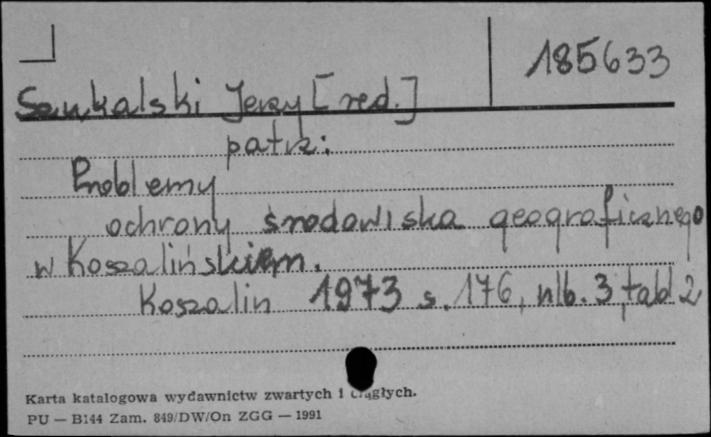 185633
Szukalski Jerzy [red.]
patrz:
Problemy
ochrony środowiska geograficznego
w Koszalińskiem.
Koszalin 1973 s. 176, nlb. 3, tabl 2
Karta katalogowa wydawnictw zwartych i ciągłych.
PU — B144 Zam. 849/DW/On ZGG — 1991